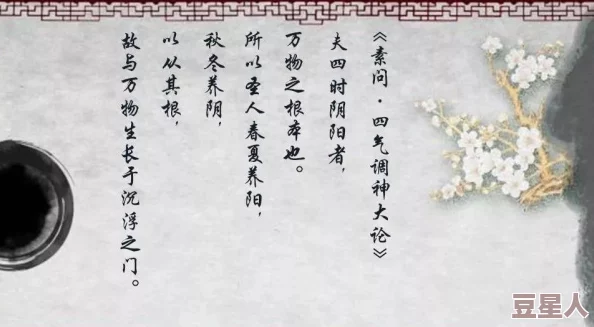 《素问·四气调神大论》
夫四时阴阳者，
万物之根本也。
所以圣人春夏养阳，
秋冬养阴，
以从其根，
故与万物生长于沉浮之门。
豆星人